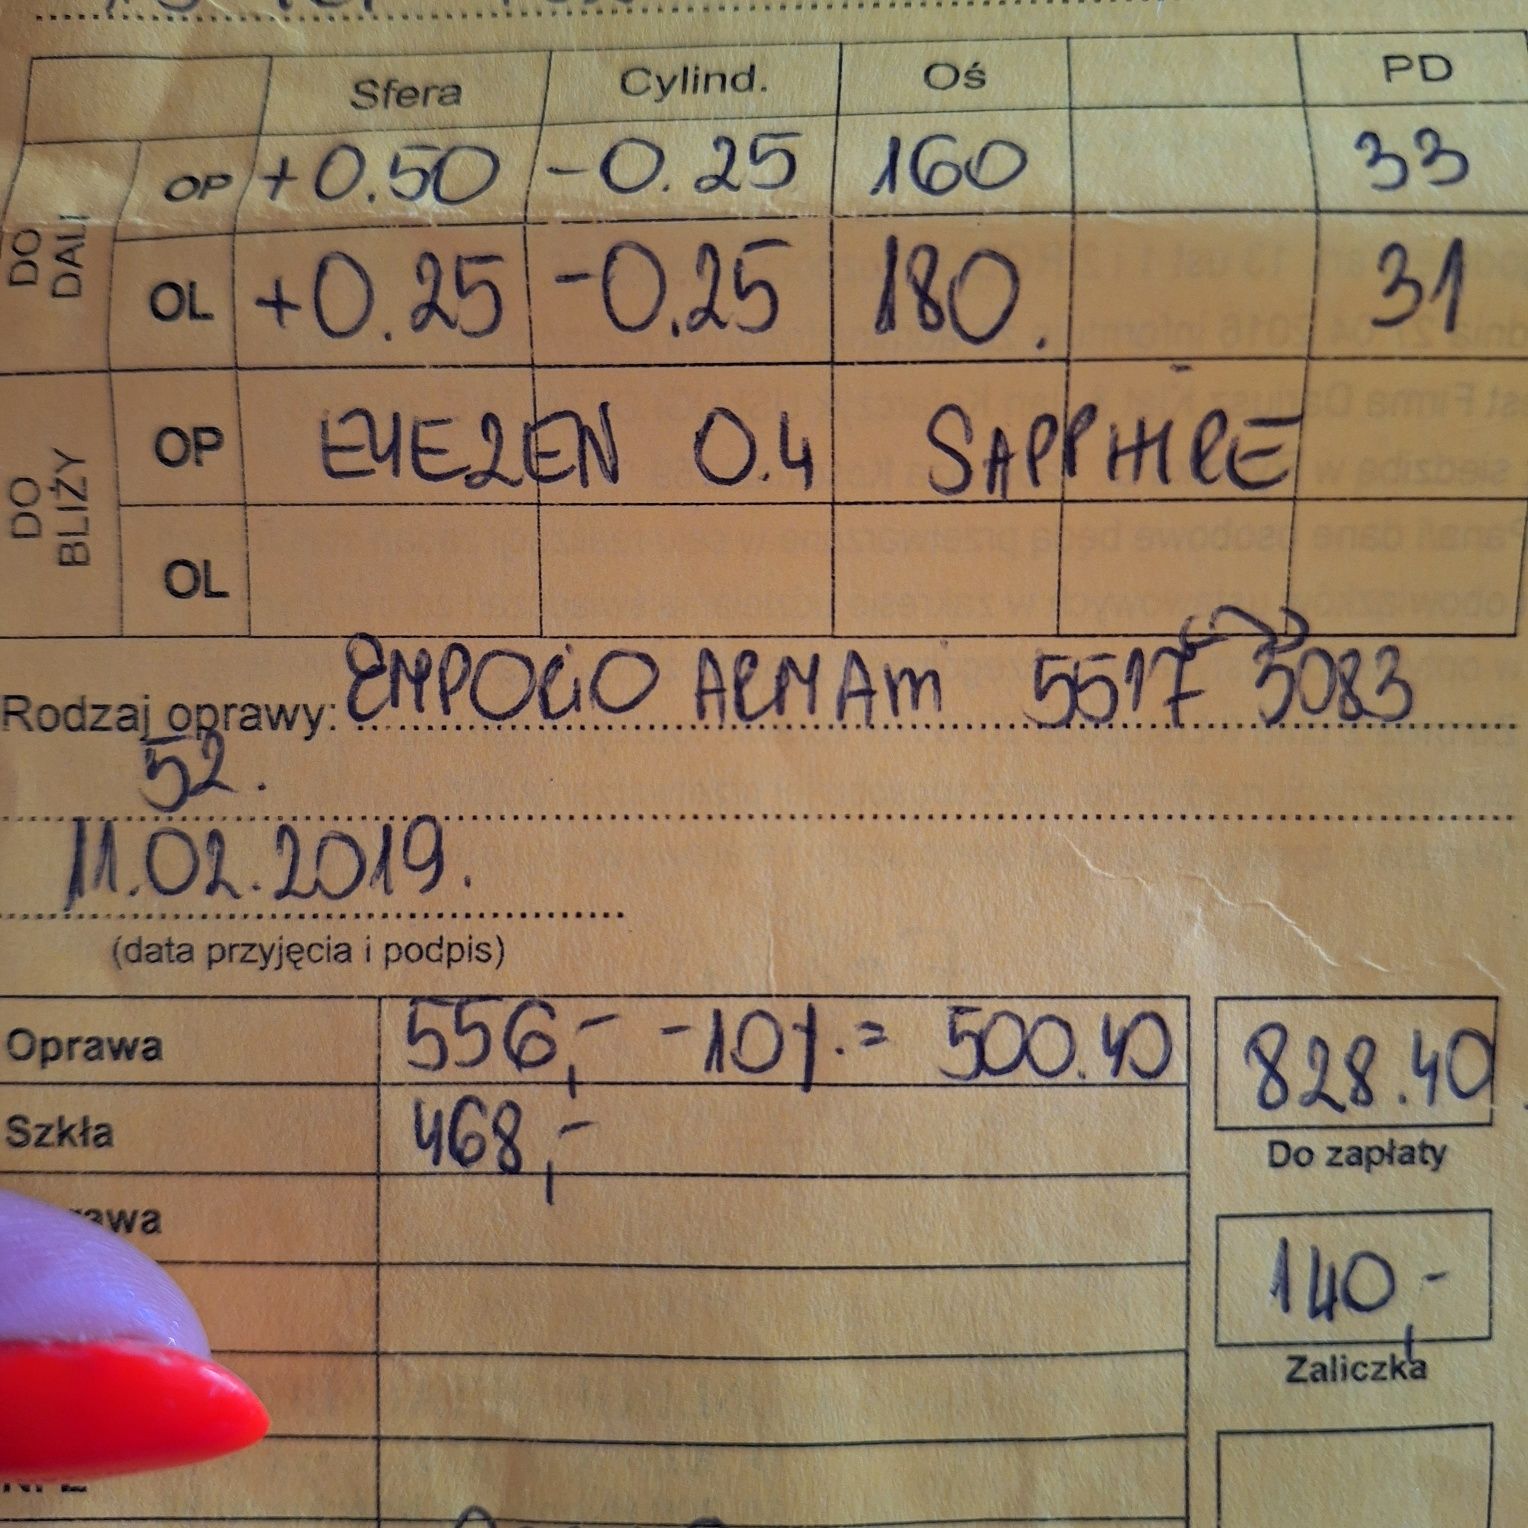 Sfera Cylind. Oś PD
DO DALI OP +0.50 -0.25 160 33
OL +0.25 -0.25 180. 31
DO BLIŻY OP EYEZEN 0.4 SAPPHIRE
OL
Rodzaj oprawy: EMPORIO ARMANI 5517 5083
52.
11.02.2019.
(data przyjęcia i podpis)
Oprawa 556,- -10%.= 500.40 828.40
Do zapłaty
Szkła 468,-
140,-
Zaliczka